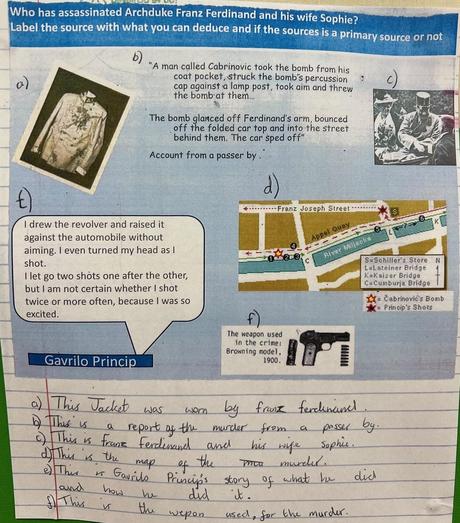 Who has assassinated Archduke Franz Ferdinand and his wife Sophie?
Label the source with what you can deduce and if the sources is a primary source or not
a)
b)
"A man called Cabrinovic took the bomb from his
coat pocket, struck the bomb's percussion
cap against a lamp post, took aim and threw
the bomb at them...
The bomb glanced off Ferdinand's arm, bounced
off the folded car top and into the street
behind them. The car sped off"
Account from a passer by.
c)
d)
Franz Joseph Street
S
Appel Quay
River Miljacka
L
K
C
S=Schiller's Store N
L=Lateiner Bridge
K=Kaizer Bridge
C=Cumburja Bridge
= Čabrinović's Bomb
= Princip's Shots
e)
I drew the revolver and raised it
against the automobile without
aiming. I even turned my head as I
shot.
I let go two shots one after the other,
but I am not certain whether I shot
twice or more often, because I was so
excited.
Gavrilo Princip
f)
The weapon used
in the crime:
Browning model,
1900.
a) This Jacket was worn by franz ferdinand.
b) This is a report of the murder from a passer by.
c) This is franz Ferdinand and his wife Sophie.
d) This is the map of the murder.
e) This is Gavrilo Princip's story of what he did
and how he did it.
f) This is the wepon used, for the murder.